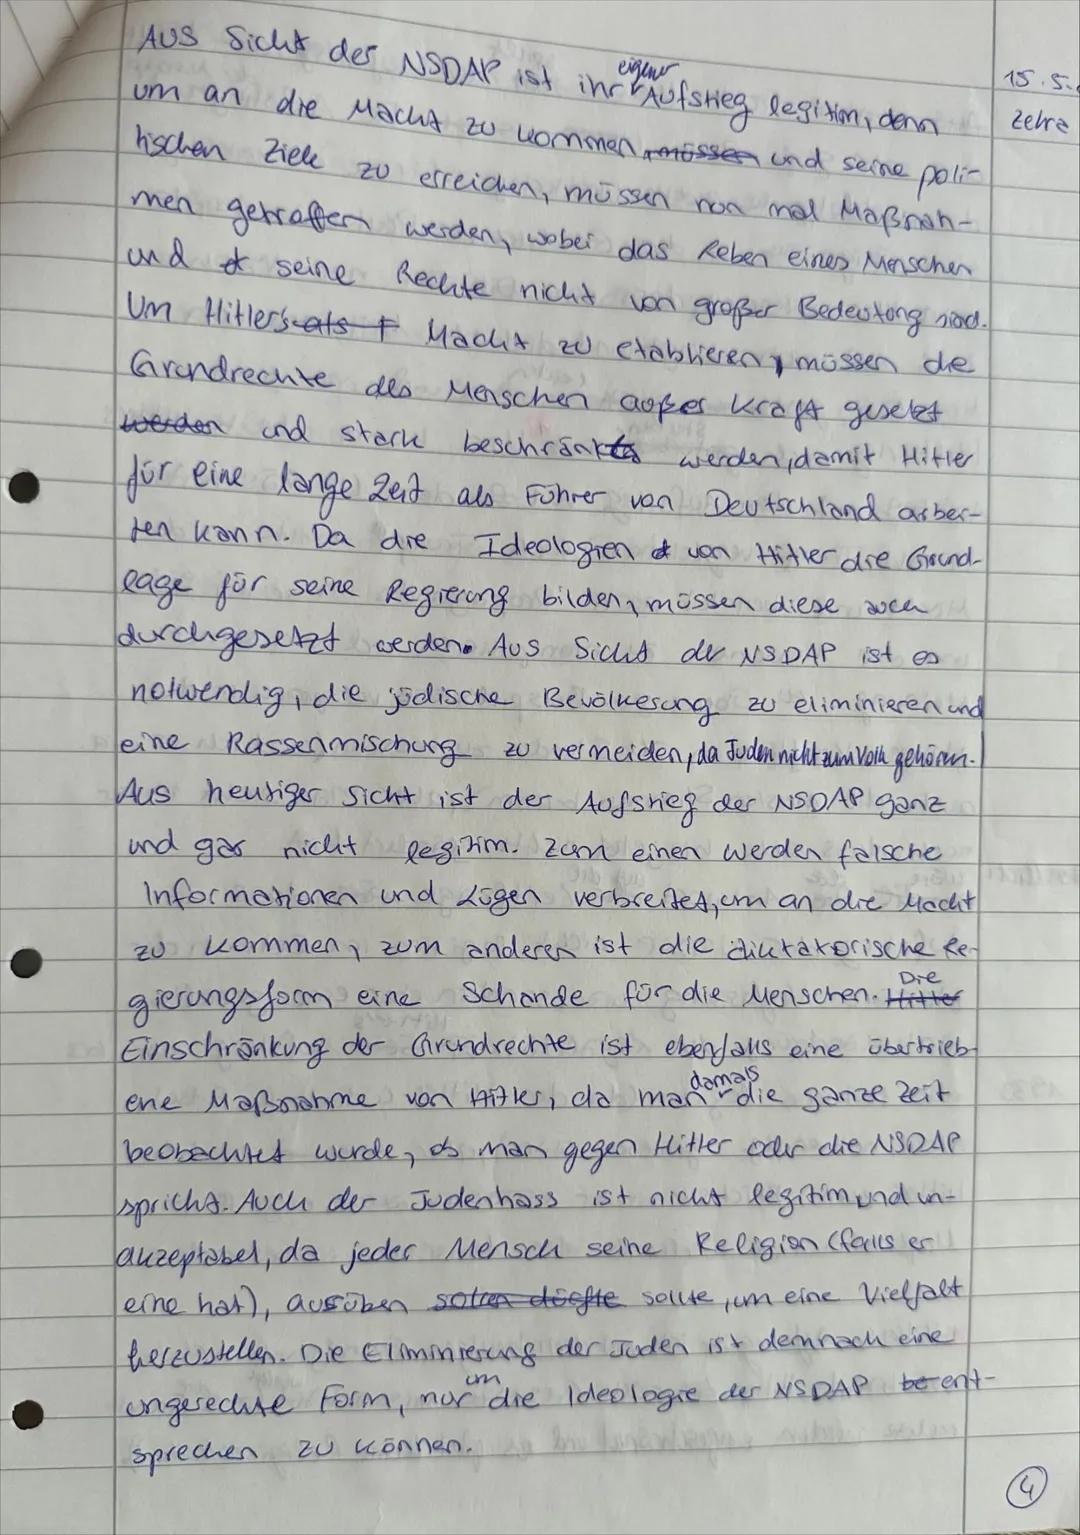 Aus Sicht der NSDAP ist ihr eigener Aufstieg legitim, denn
15.5.
Zehra
um an die Macht zu kommen müssen und seine poli-
tischen Ziele zu erreichen, müssen nun mal Maßnah-
men getroffen werden, wobei das Leben eines Menschen
und seine Rechte nicht von großer Bedeutung sind.
Um Hitlers als Macht zu etablieren, müssen die
Grundrechte des Menschen außer Kraft gesetzt
werden und stark beschränkt werden, damit Hitler
für eine lange Zeit als Führer von Deutschland arbei-
ten kann. Da die Ideologien von Hitler die Grund-
lage für seine Regierung bilden, müssen diese auch
durchgesetzt werden. Aus Sicht der NSDAP ist es
notwendig, die jüdische Bevölkerung zu eliminieren und
eine Rassenmischung zu vermeiden, da Juden nicht zum Volk gehören.
Aus heutiger Sicht ist der Aufstieg der NSDAP ganz
und gar nicht legitim. Zum einen werden falsche
Informationen und Lügen verbreitet, um an die Macht
zu kommen, zum anderen ist die diktatorische Re-
gierungsform eine Schande für die Menschen. Hitler Die
Einschränkung der Grundrechte ist ebenfalls eine übertrieb-
ene Maßnahme von Hitler, da man damals die ganze Zeit
beobachtet wurde, ob man gegen Hitler oder die NSDAP
spricht. Auch der Judenhass ist nicht legitim und un-
akzeptabel, da jeder Mensch seine Religion (falls er
eine hat), ausüben sollen dürfte sollte, um eine Vielfalt
herzustellen. Die Eliminierung der Juden ist demnach eine
ungerechte Form, nur um die Ideologie der NSDAP be ent-
sprechen zu können.
4